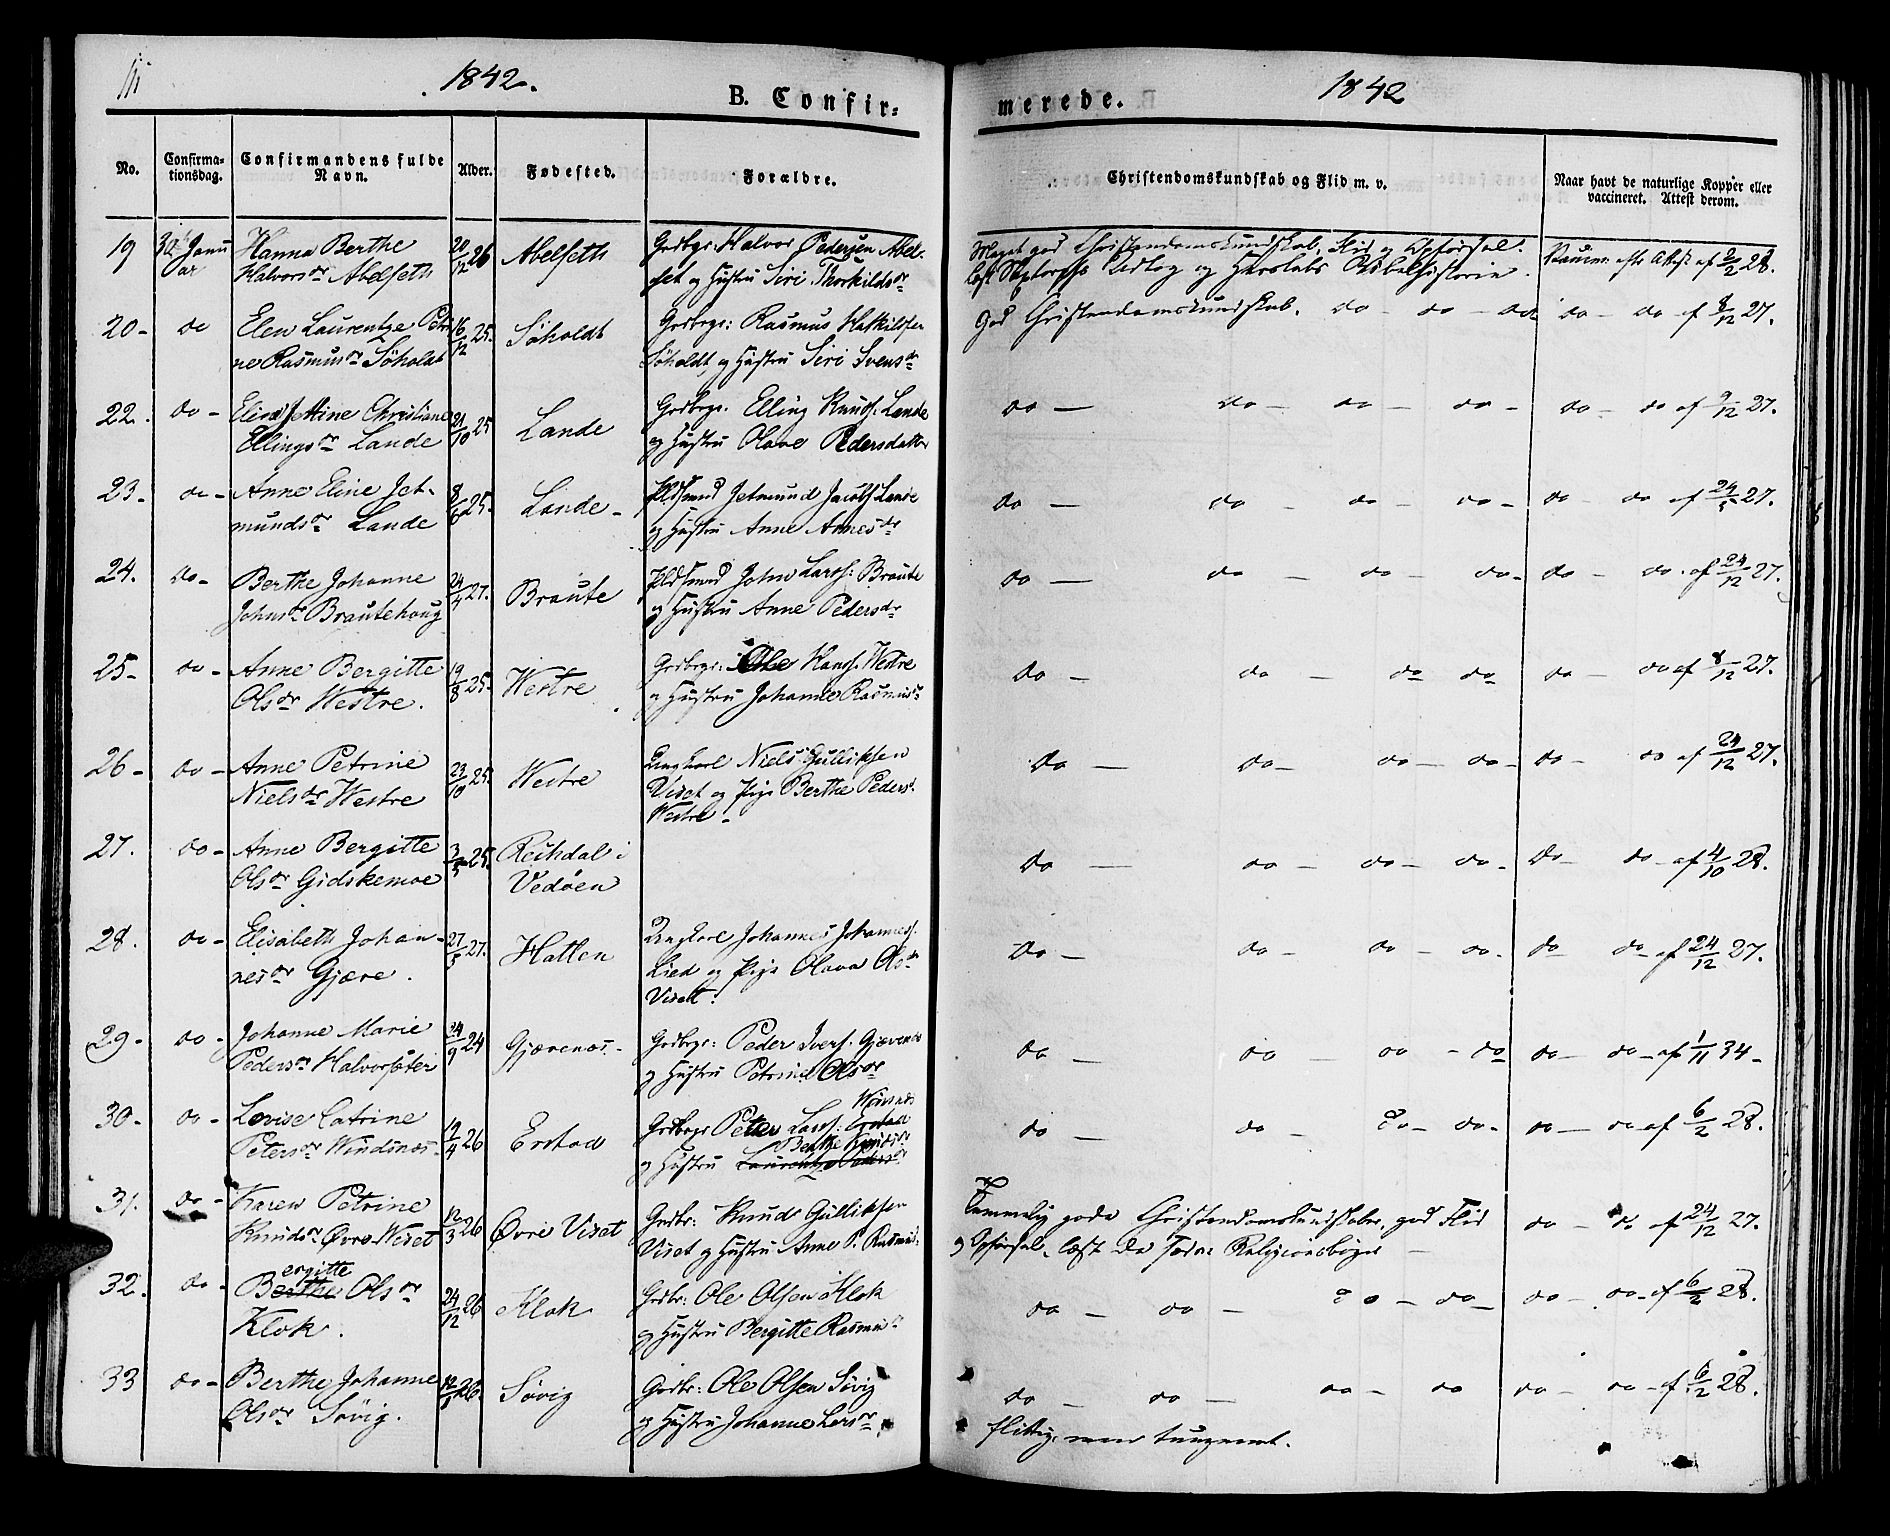 1842.
B. Confir=
merede.
1842
No.
Confirma-
tionsdag.
Confirmandens fulde
Navn.
Alder.
Fødested.
Forældre.
Christendomskundskab og Flid m. v.
Naar havt de naturlige Kopper eller
vaccineret. Attest derom.
19 30 Janu
ar
Hanna Berthe
Halvorsdr Abelseth
20/12 26
Abelseth
Grdbrgr: Halvor Pedersen Abel-
set og Hustru Siri Thorkildsdr
Meget god Christendomskundskab, Flid og Opførsel.
læst Udtog og Bibelhistorie.
Vaccin: efter Attest af 6/2 28.
20- do
Elen Laurentze Petri
ne Rasmusdr Søholdt
16/12 25.
Søholdt
Grdbrgr: Rasmus
Søholdt og Hustru Siri Svensdr
God Christendomskundskab. do - do - do
do - do af 8/12 27.
22. do -
Jettine Christiane
Ellingsdr Lande
21/10 25
Lande
Grdbrgr: Elling Knuds. Lande
og Hustru Olave Pedersdatter
do - do - do - do -
do - do af 9/12 27.
23- do -
Anne Eline Jet-
mundsdr Lande
8/6 25.
Lande -
Pldsmd Jetmund Jacobs. Lande
og Hustru Anne Arnesdr
do - do - do - do -
do - do af 24/5 27.
24. do -
Berthe Johanne
Johnsdr Brautehoug
24/4 27.
Braute
Pldsmd John Larss: Braute
og Hustru Anne Pedersdr
do - do - do - do -
do - do. af 24/12 27.
25- do -
Anne Bergitte
Olsdr Westre.
19/8 25.
Westre
Grdbrgr: Ole Hans. Westre
og Hustru Johanne Rasmus
do - do - do do
do - do af 8/12 27.
26- do -
Anne Petrine
Nielsdr Westre
23/10 25.
Westre
Ungkarl Niels Gulliksen
Viset og Pige Berthe Peders
Westre -
do - do - do - do -
do - do af 24/12 27.
27. do -
Anne Bergitte
Olsdr Gidskemoe
3/5 25.
i
Vedøen
do - do - do - do -
do - do - af 4/10 28.
28. do -
Elisabeth Johan-
nesdr Gjære.
27/5 27.
Hatlen
Ungkarl Johannes Johannes.
Lied og Pige Olava Olsdr
Viset.
do - do - do - do -
do do - af 24/12 27.
29- do -
Johanne Marie
Pedersdr Halvorsæter
24/9 24
Gjævenes -
Grdbrgr: Peder Ivers. Gjævenes
og Hustru Petrine Olsdr
do - do - do - do
do - do - af 1/11 34-
30- do -
Lovise Catrine
Petersdr Windsnæs -
19/4 26
Erstad
Grdbrgr Peter Larss: Erstad
og Hustru Laurentze Pedersdr
do - do - do - do -
do - do af 6/2 28.
31. do -
Karen Petrine
Knudsdr Øvre Weset
12/3 26
Øvre Viset
Grdbr: Knud Gulliksen
Viset og Hustru Anne P. Rasmus:
Temmelig gode Christendomskundskaber, god Flid
og Opførsel, læst Religionsbøger
do - do af 24/12 27.
32. do -
ergitte
Berthe Olsdr
Klok.
24/12 26
Klok
Grdbr: Ole Olsen Klok
og Hustru Bergitte Rasmus
do - do - do - do
do - do - af 6/2 28.
33 do -
Berthe Johanne
Olsdr Søvig.
26
Søvig
Grdbr: Ole Olsen Søvig
og Hustru Johanne Larsdr
do - do - do - do
do - do - af 6/2 28.
flittig, men tungnemt.